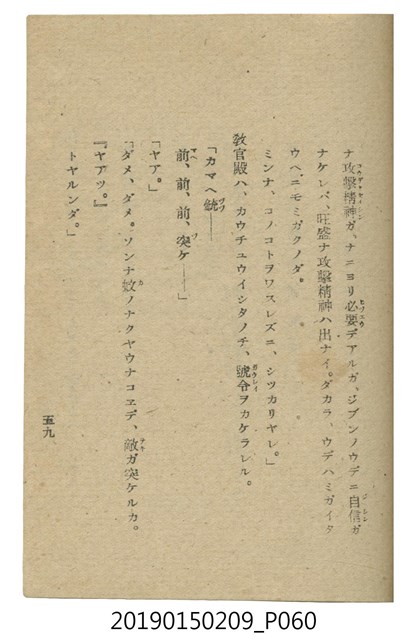 ナ攻擊精神ガ、ナニヨリ必要デアルガ、ジブンノウデニ自信ガ
ナケレバ、旺盛ナ攻擊精神ハ出ナイ。ダカラ、ウデハミガイタ
ウヘニモミガクノダ。
ミンナ、コノコトヲワスレズニ、シツカリヤレ。」
教官殿ハ、カウチュウイシタノチ、號令ヲカケラレル。
「カマヘ銃――」
前、前、前、突ケ――」
「ヤア。」
「ダメ、ダメ。ソンナ蚊ノナクヤウナコヱデ、敵ガ突ケルカ。
『ヤアッ。』
トヤルンダ。」
五九
20190150209_P060